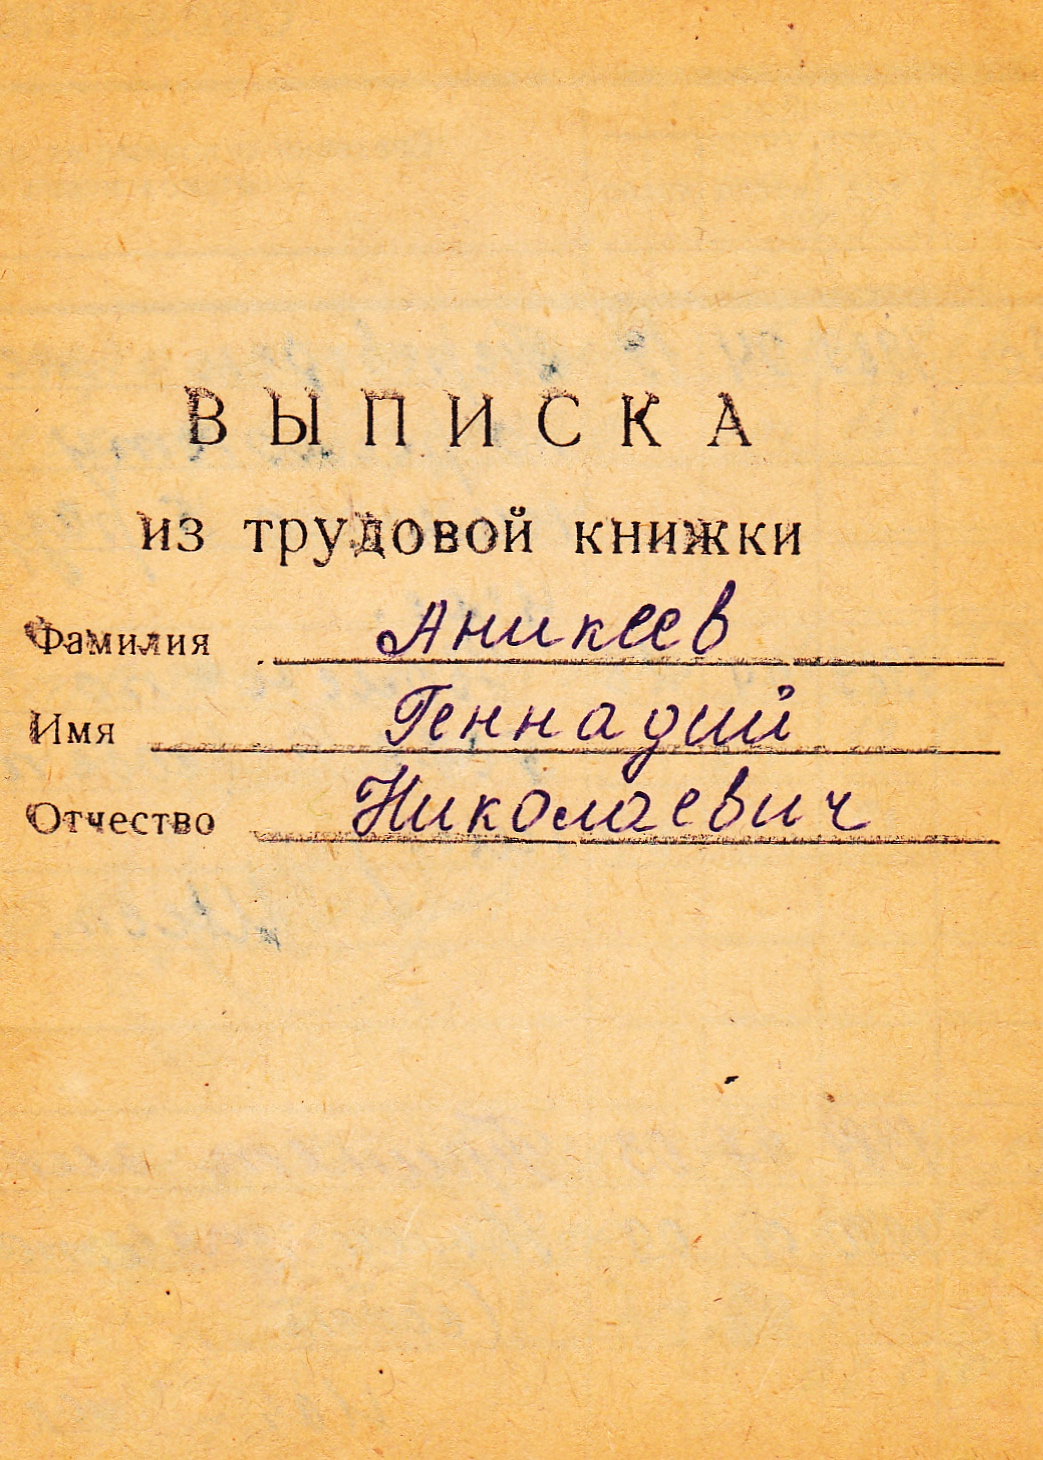 ВЫПИСКА
из трудовой книжки
Фамилия Аникеев
Имя Геннадий
Отчество Николаевич